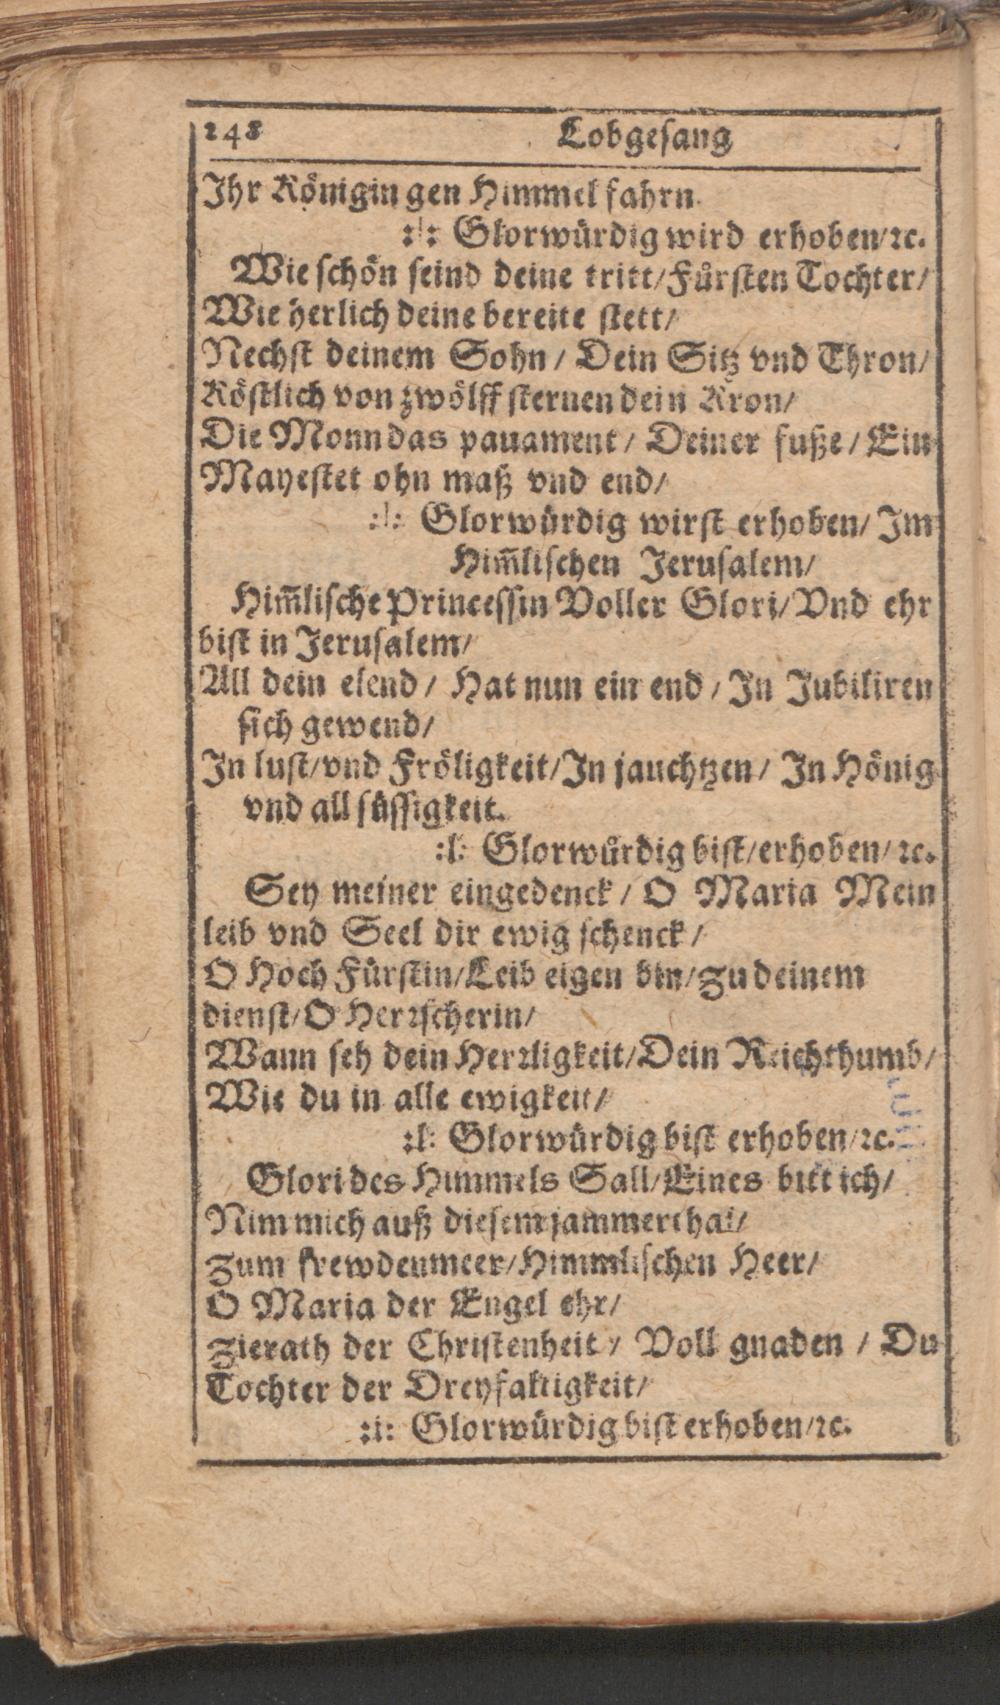 248 Lobgesang
Ihr Königin gen Himmel fahrn.
:|: Glorwürdig wird erhoben/ꝛc.
Wie schön seind deine tritt/Fürsten Tochter/
Wie herlich deine bereite stett/
Nechst deinem Sohn / Dein Sitz vnd Thron/
Köstlich von zwölff sternen dein Kron/
Die Monn das pauament / Deiner fuße / Ein
Mayestet ohn maß vnd end/
:|: Glorwürdig wirst erhoben/ Im
Him̃lischen Jerusalem/
Him̃lische Princessin Voller Glori/ Vnd ehr
bist in Jerusalem/
All dein elend / Hat nun ein end / In Jubiliren
sich gewend/
In lust/vnd Fröligkeit/In jauchtzen/ In Hönig
vnd all süssigkeit.
:|: Glorwürdig bist/erhoben/ ꝛc.
Sey meiner eingedenck / O Maria Mein
leib vnd Seel dir ewig schenck /
O Hoch Fürstin/Leib eigen bin/zu deinem
dienst/O Herꝛscherin/
Wann seh dein Herꝛligkeit/Dein Reichthumb/
Wie du in alle ewigkeit/
:|: Glorwürdig bist erhoben/ꝛc.
Glori des Himmels Sall/Eines bitt ich/
Nim mich auß diesem jammerthal/
Zum frewdenmeer/Himmlischen Heer/
O Maria der Engel ehr/
Zierath der Christenheit / Voll gnaden / Du
Tochter der Dreyfaltigkeit/
:|: Glorwürdig bist erhoben/ꝛc.